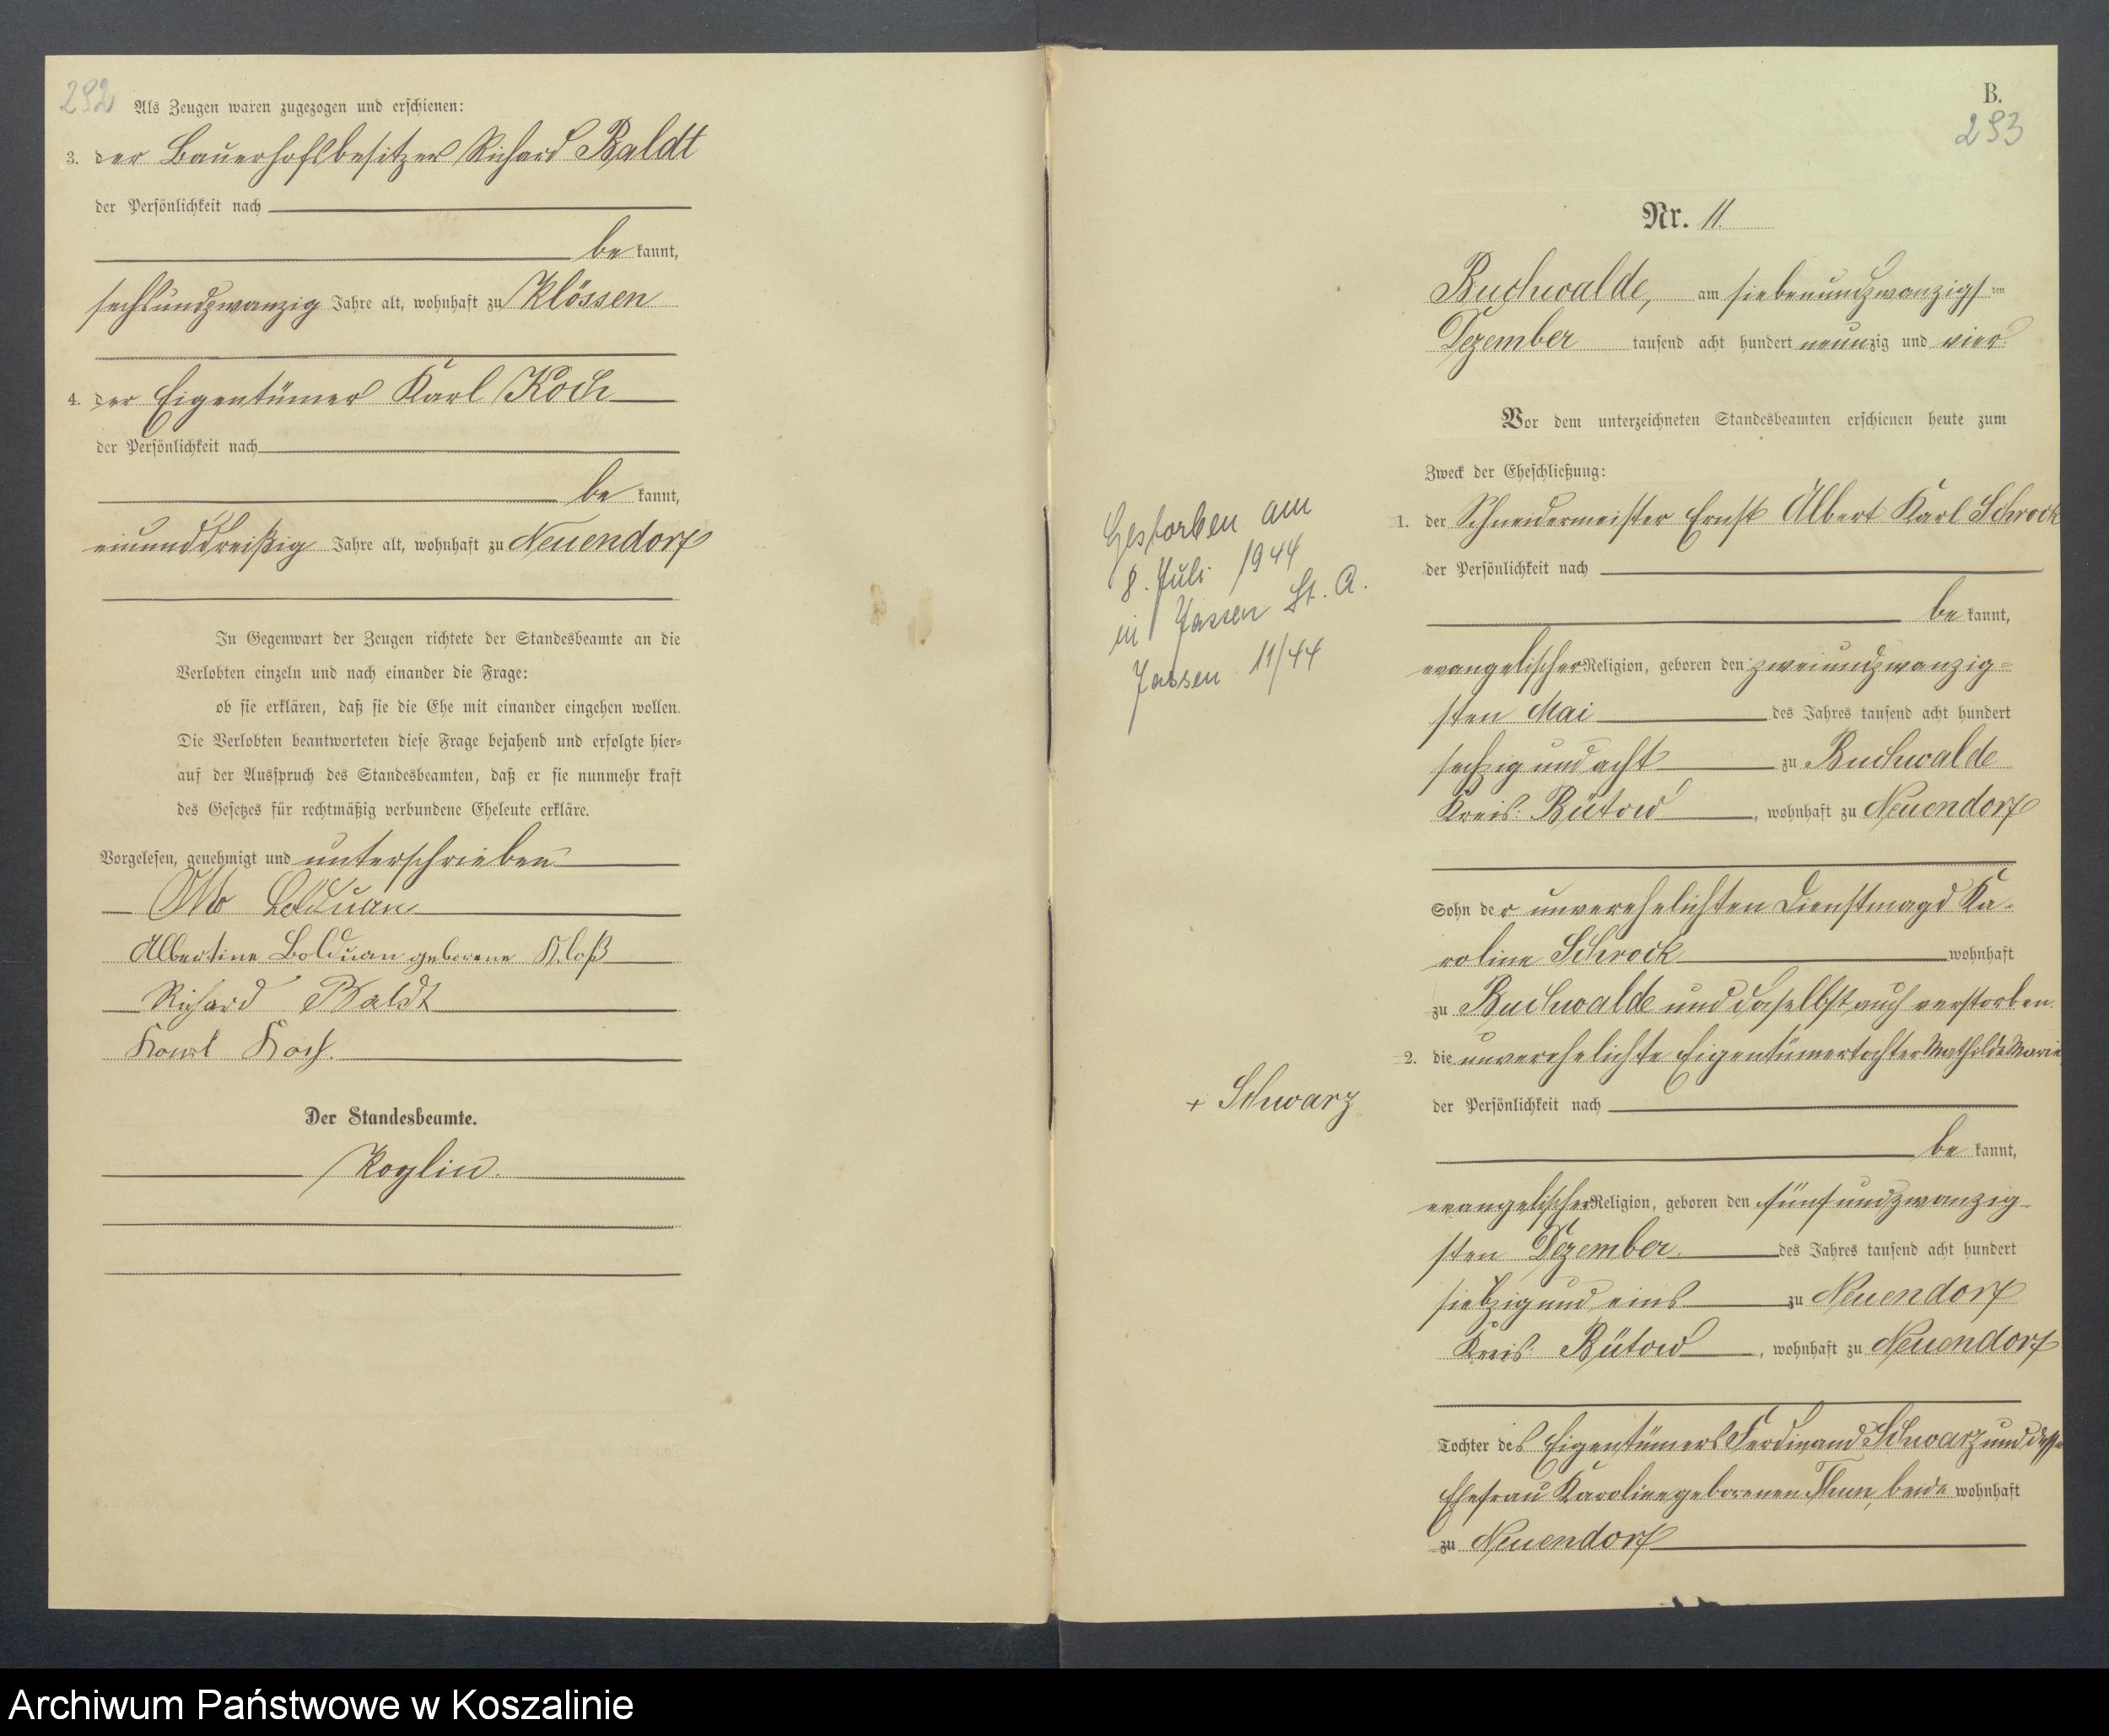 292
Als Zeugen waren zugezogen und erschienen:
3. der Bauerhofsbesitzer Richard Baldt
der Persönlichkeit nach
be kannt,
sechsundzwanzig Jahre alt, wohnhaft zu Klössen
4. der Eigentümer Karl Koch
der Persönlichkeit nach
be kannt,
einunddreißig Jahre alt, wohnhaft zu Neuendorf
In Gegenwart der Zeugen richtete der Standesbeamte an die
Verlobten einzeln und nach einander die Frage:
ob sie erklären, daß sie die Ehe mit einander eingehen wollen.
Die Verlobten beantworteten diese Frage bejahend und erfolgte hier-
auf der Ausspruch des Standesbeamten, daß er sie nunmehr kraft
des Gesetzes für rechtmäßig verbundene Eheleute erkläre.
Vorgelesen, genehmigt und unterschrieben
Otto Bolduan
Albertine Bolduan geborene Kloß
Richard Baldt
Karl Koch.
Der Standesbeamte.
Koglin.
B.
293
Nr. 11.
Buchwalde, am siebenundzwanzigsten
Dezember tausend acht hundert neunzig und vier.
Vor dem unterzeichneten Standesbeamten erschienen heute zum
Zweck der Eheschließung:
1. der Schneidermeister Ernst Albert Karl Schrock
der Persönlichkeit nach
be kannt,
evangelischer Religion, geboren den zweiundzwanzig-
sten Mai des Jahres tausend acht hundert
sechzig und acht zu Buchwalde
Kreis: Bütow, wohnhaft zu Neuendorf
Sohn der unverehelichten Dienstmagd Ka-
roline Schrock wohnhaft
zu Buchwalde und daselbst auch verstorben.
2. die unverehelichte Eigentümertochter Mathilde Marie
der Persönlichkeit nach
be kannt,
evangelischer Religion, geboren den fünfundzwanzig-
sten Dezember des Jahres tausend acht hundert
siebzig und eins zu Neuendorf
Kreis: Bütow, wohnhaft zu Neuendorf
Tochter des Eigentümers Ferdinand Schwarz und dessen
Ehefrau Karoline geborenen Thun, beide wohnhaft
zu Neuendorf
Gestorben am
8. Juli 1944
in Jassen St. A.
Jassen 11/44
+ Schwarz
Archiwum Państwowe w Koszalinie